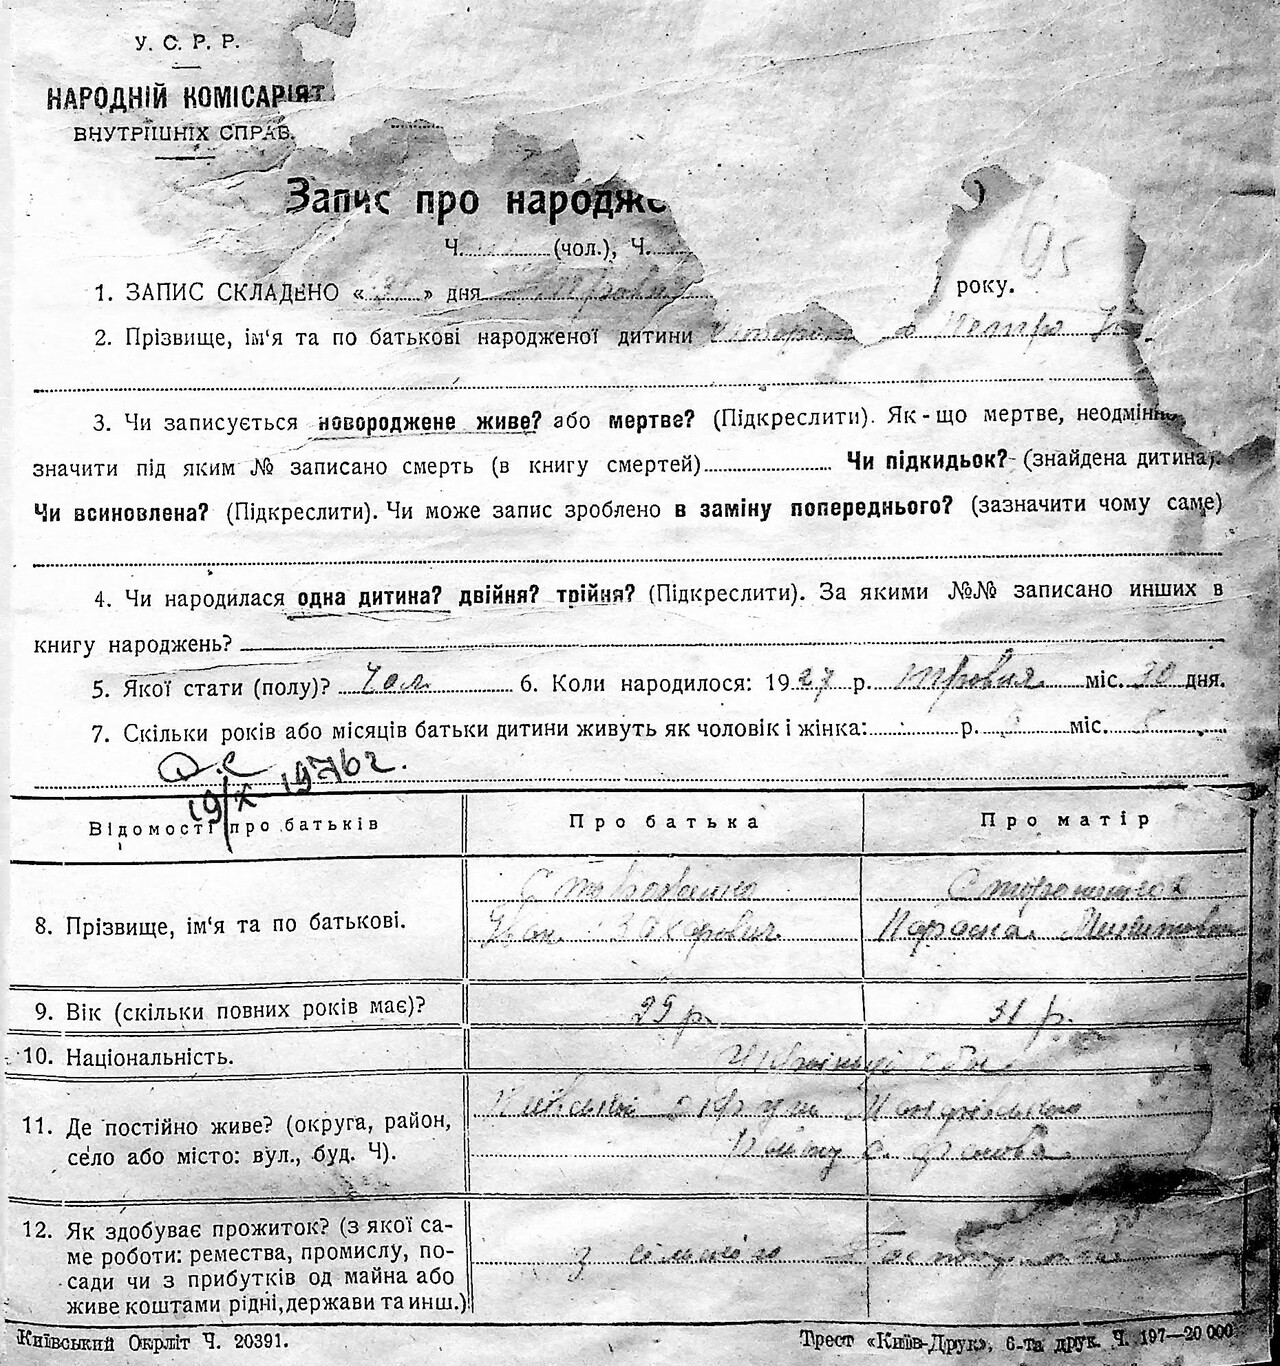 У. С. Р. Р.
НАРОДНІЙ КОМІСАРІЯТ
ВНУТРІШНІХ СПРАВ.
Запис про народже
Ч. (чол.), Ч.
95
1. ЗАПИС СКЛАДЕНО « 31 » дня травня року.
2. Прізвище, ім'я та по батькові народженої дитини Петро
3. Чи записується новороджене живе? або мертве? (Підкреслити). Як-що мертве, неодмінно
значити під яким № записано смерть (в книгу смертей) Чи підкидьок? (знайдена дитина).
Чи всиновлена? (Підкреслити). Чи може запис зроблено в заміну попереднього? (зазначити чому саме)
4. Чи народилася одна дитина? двійня? трійня? (Підкреслити). За якими №№ записано инших в
книгу народжень?
5. Якої стати (полу)? Чол. 6. Коли народилося: 1927 р. травня міс. 30 дня.
7. Скільки років або місяців батьки дитини живуть як чоловік і жінка: р. міс. 5
19/X 1976г.
Відомості про батьків Про батька Про матір
8. Прізвище, ім'я та по батькові.
Іван Захарович Параска
9. Вік (скільки повних років має)? 29 р. 31 р.
10. Національність. Українці
11. Де постійно живе? (округа, район,
село або місто: вул., буд. Ч).
Київської округи
району с.
12. Як здобуває прожиток? (з якої са-
ме роботи: ремества, промислу, по-
сади чи з прибутків од майна або
живе коштами рідні, держави та инш.)
з сільського господарства
Київський Окрліт Ч. 20391. Трест «Київ-Друк», 6-та друк. Ч. 197—20 000